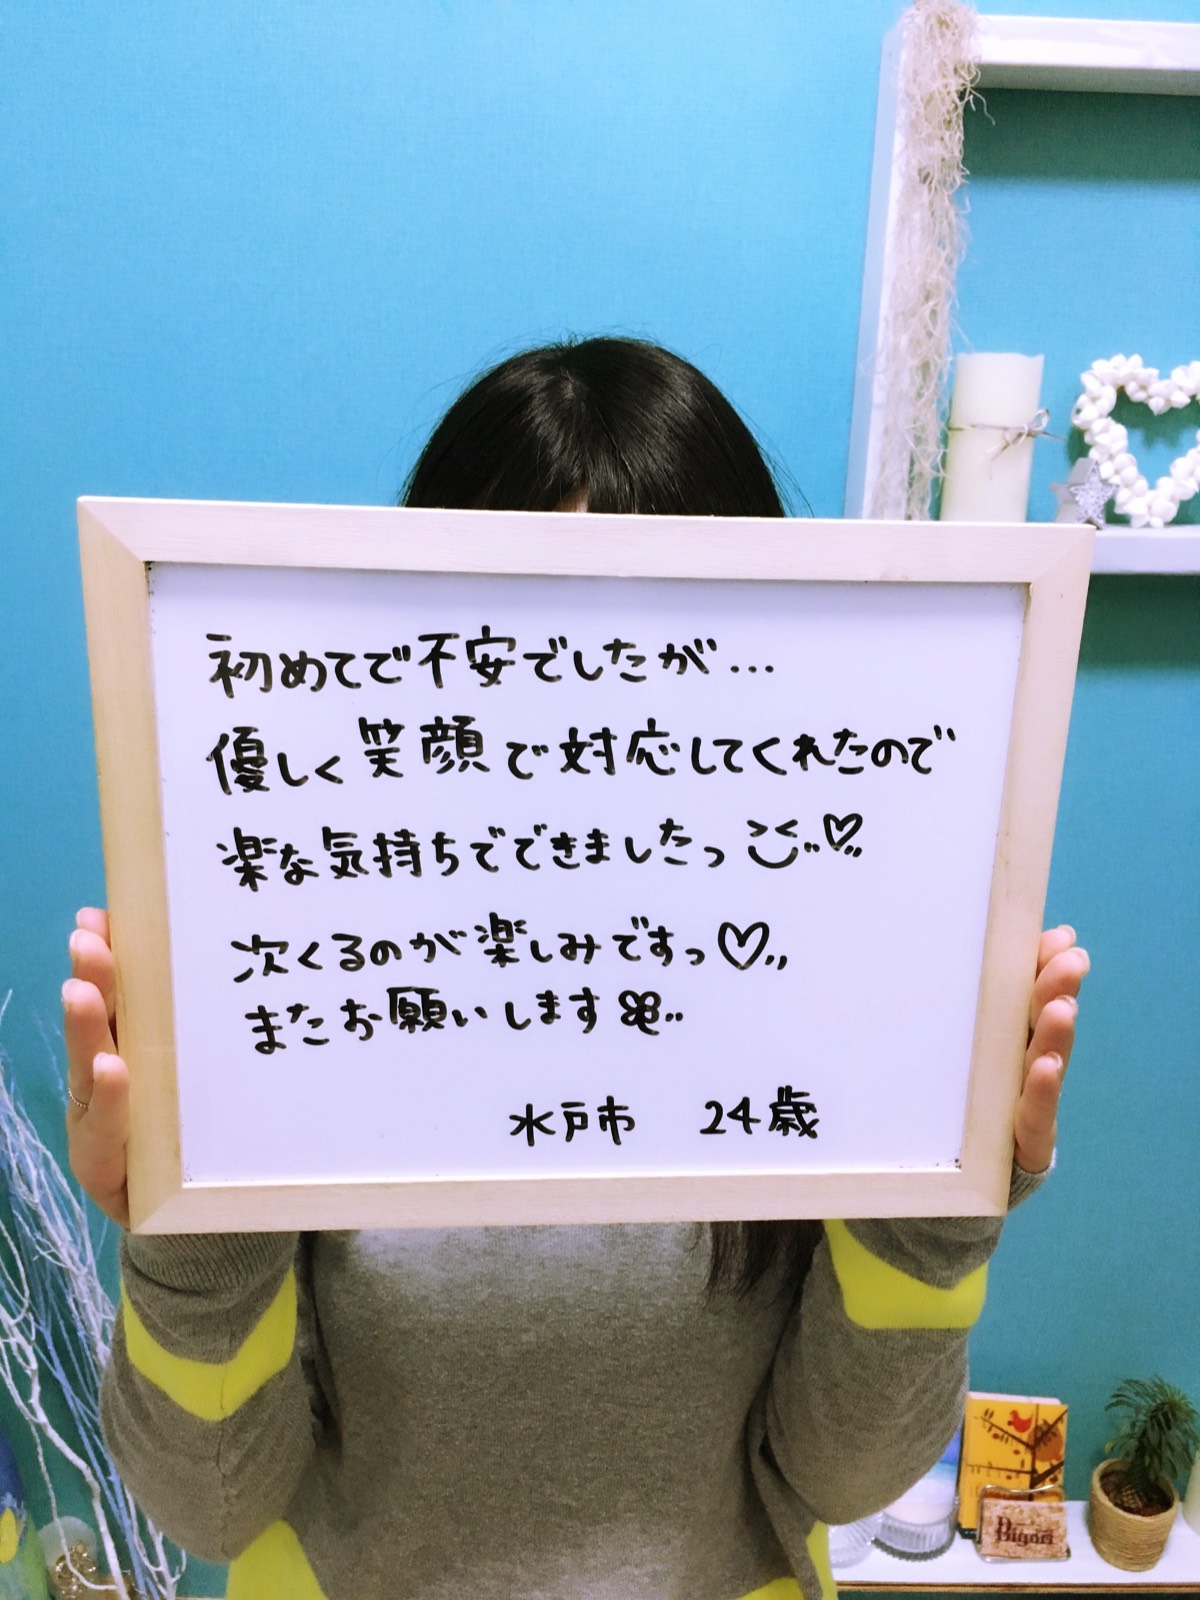 初めてで不安でしたが…
優しく笑顔で対応してくれたので
楽な気持ちでできましたっ
次くるのが楽しみですっ♡
またお願いします
水戸市 24歳